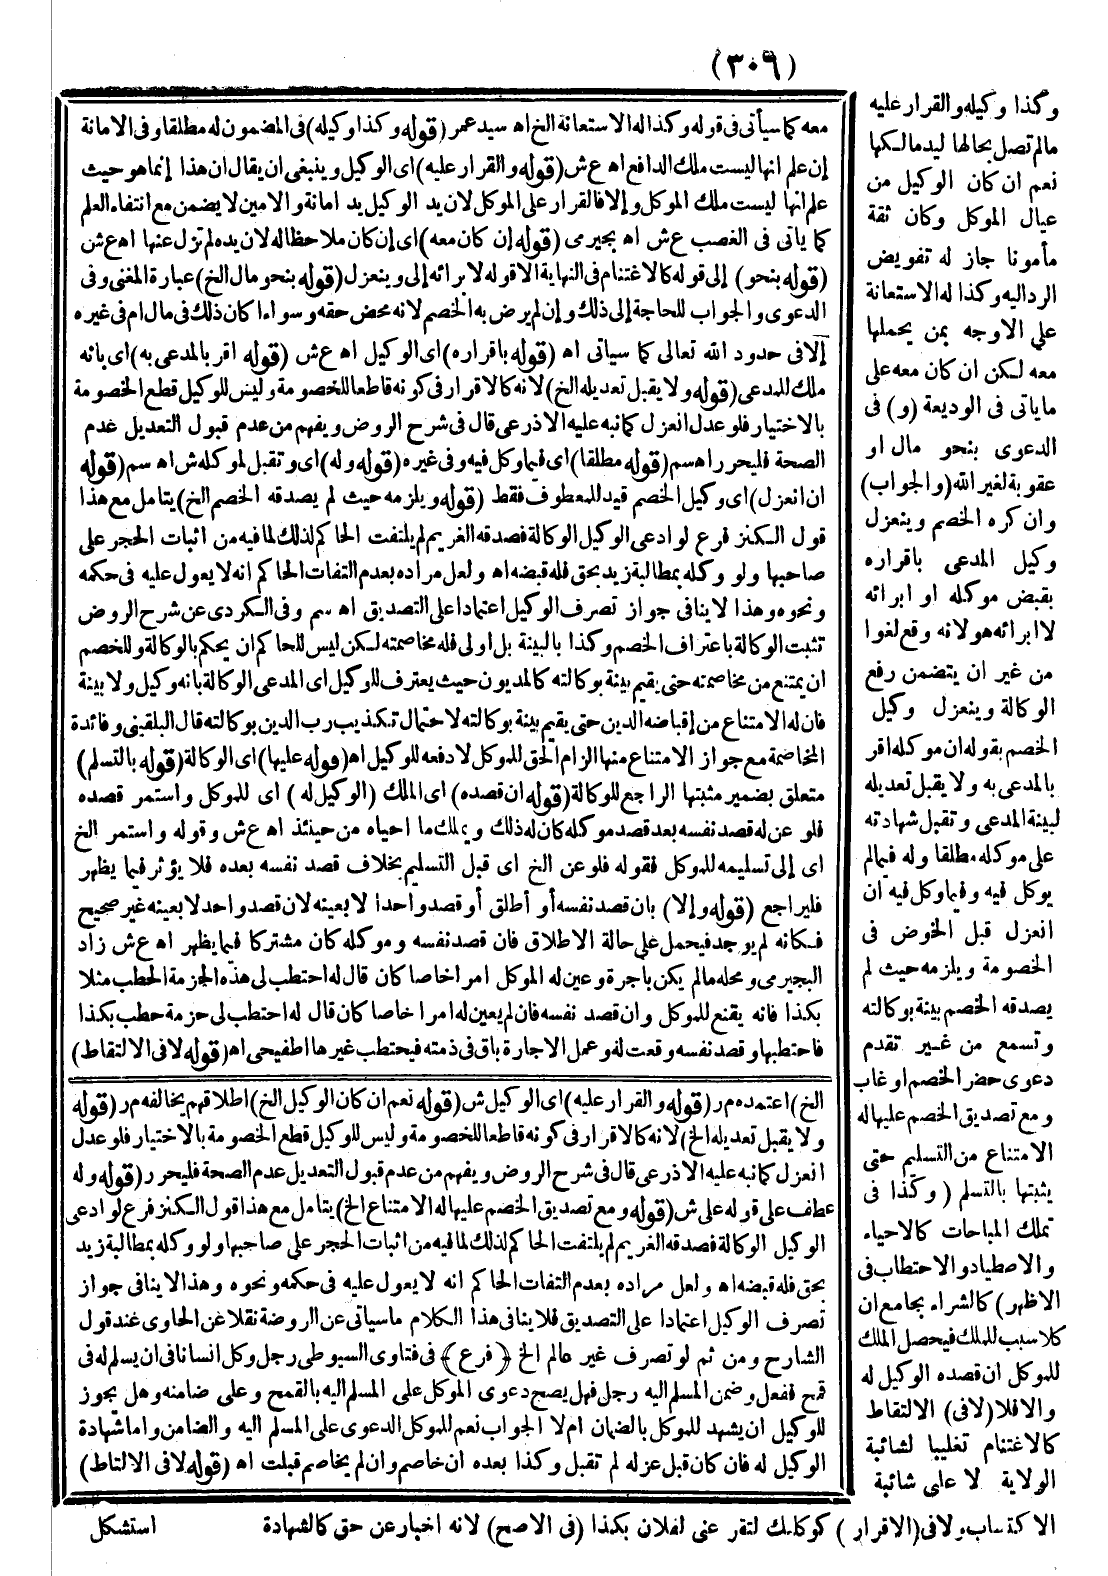 (٣٠٩)
وكذا وكيله والقرار عليه
مالم تصل بحالها ليد مالكها
نعم ان كان الوكيل من
عيال الموكل وكان ثقة
مأمونا جاز له تفويض
الرد اليه وكذا له الاستعانة
على الاوجه بمن يحملها
معه لكن ان كان معه على
ما ياتى فى الوديعة (و) فى
الدعوى بنحو مال او
عقوبة لغير الله (والجواب)
وان كره الخصم وينعزل
وكيل المدعى باقراره
بقبض موكله او ابرائه
لا ابرائه هو لانه وقع لغوا
من غير ان يتضمن رفع
الوكالة وينعزل وكيل
الخصم بقوله ان موكله اقر
بالمدعى به ولا يقبل تعديله
لبينة المدعى وتقبل شهادته
على موكله مطلقا وله فيما لم
يوكل فيه وفيما وكل فيه ان
انعزل قبل الخوض فى
الخصومة ويلزمه حيث لم
يصدقه الخصم بينة بوكالته
وتسمع من غير تقدم
دعوى حضر الخصم او غاب
ومع تصديق الخصم عليها له
الامتناع من التسليم حتى
يثبتها بالتسلم (وكذا فى
تملك المباحات كالاحياء
والاصطياد والاحتطاب فى
الاظهر) كالشراء بجامع ان
كلا سبب للملك فيحصل الملك
للموكل ان قصده الوكيل له
والا فلا (لا فى) الالتقاط
كالاغتنام تغليبا لشائبة
الولاية لا على شائبة
الاكتساب ولا فى (الاقرار) كوكلتك لتقر عنى لفلان بكذا (فى الاصح) لانه اخبار عن حق كالشهادة استشكل
معه كما سيأتى فى قوله وكذا له الاستعانة الخ اه سيد عمر (قوله وكذا وكيله) فى المضمون له مطلقا وفى الامانة
إن علم انها ليست ملك الدافع اه ع ش (قوله والقرار عليه) اى الوكيل وينبغى ان يقال ان هذا إنما هو حيث
علم انها ليست ملك الموكل وإلا فالقرار على الموكل لان يد الوكيل يد امانة والامين لا يضمن مع انتفاء العلم
كما ياتى فى الغصب ع ش اه بجيرمى (قوله إن كان معه) اى إن كان ملاحظا له لان يده لم تزل عنها اه ع ش
(قوله بنحو) إلى قوله كالاغتنام فى النهاية الا قوله لا ابرائه إلى وينعزل (قوله بنحو مال الخ) عبارة المغنى وفى
الدعوى والجواب للحاجة إلى ذلك وإن لم يرض به الخصم لانه محض حقه وسواء اكان ذلك فى مال ام فى غيره
إلا فى حدود الله تعالى كما سياتى اه (قوله باقراره) اى الوكيل اه ع ش (قوله اقر بالمدعى به) اى بانه
ملك للمدعى (قوله ولا يقبل تعديله الخ) لانه كالاقرار فى كونه قاطعا للخصومة وليس للوكيل قطع الخصومة
بالاختيار فلو عدل انعزل كما نبه عليه الاذرعى قال فى شرح الروض ويفهم من عدم قبول التعديل عدم
الصحة فليحرر اه سم (قوله مطلقا) اى فيما وكل فيه وفى غيره (قوله وله) اى وتقبل لموكله ش اه سم (قوله
ان انعزل) اى وكيل الخصم قيد للمعطوف فقط (قوله ويلزمه حيث لم يصدقه الخصم الخ) يتامل مع هذا
قول الكنز فرع لو ادعى الوكيل الوكالة فصدقه الغريم لم يلتفت الحاكم لذلك لما فيه من اثبات الحجر على
صاحبها ولو وكله بمطالبة زيد بحق فله قبضه اه ولعل مراده بعدم التفات الحاكم انه لا يعول عليه فى حكمه
ونحوه وهذا لا ينافى جواز تصرف الوكيل اعتمادا على التصديق اه سم وفى الكردى عن شرح الروض
تثبت الوكالة باعتراف الخصم وكذا بالبينة بل اولى فله مخاصمته لكن ليس للحاكم ان يحكم بالوكالة وللخصم
ان يمتنع من مخاصمته حتى يقيم بينة بوكالته كالمديون حيث يعترف للوكيل اى المدعى الوكالة بانه وكيل ولا بينة
فان له الامتناع من إقباضه الدين حتى يقيم بينة بوكالته لاحتمال تكذيب رب الدين بوكالته قال البلقينى وفائدة
المخاصمة مع جواز الامتناع منها الزام الحق للموكل لا دفعه للوكيل اه (قوله عليها) اى الوكالة (قوله بالتسلم)
متعلق بضمير مثبتها الراجع للوكالة (قوله ان قصده) اى الملك (الوكيل له) اى للموكل واستمر قصده
فلو عن له قصد نفسه بعد قصد موكله كان له ذلك ويملك ما احياه من حينئذ اه ع ش وقوله واستمر الخ
اى إلى تسليمه للموكل فقوله فلو عن الخ اى قبل التسليم بخلاف قصد نفسه بعده فلا يؤثر فيما يظهر
فليراجع (قوله وإلا) بان قصد نفسه أو أطلق أو قصد واحدا لا بعينه لان قصد واحد لا بعينه غير صحيح
فكانه لم يوجد فيحمل على حالة الاطلاق فان قصد نفسه وموكله كان مشتركا فيما يظهر اه ع ش زاد
البجيرمى ومحله مالم يكن باجرة وعين له الموكل امرا خاصا كان قال له احتطب لى هذه الحزمة الحطب مثلا
بكذا فانه يقع للموكل وان قصد نفسه فان لم يعين له امرا خاصا كان قال له احتطب لى حزمة حطب بكذا
فاحتطبها وقصد نفسه وقعت له وعمل الاجارة باق فى ذمته فيحتطب غيرها اطفيحى اه (قوله لا فى الالتقاط)
الخ) اعتمده مر (قوله والقرار عليه) اى الوكيل ش (قوله نعم ان كان الوكيل الخ) اطلاقهم يخالفه مر (قوله
ولا يقبل تعديله الخ) لانه كالاقرار فى كونه قاطعا للخصومة وليس للوكيل قطع الخصومة بالاختيار فلو عدل
انعزل كما نبه عليه الاذرعى قال فى شرح الروض ويفهم من عدم قبول التعديل عدم الصحة فليحرر (قوله وله
عطف على قوله على ش (قوله ومع تصديق الخصم عليها له الامتناع الخ) يتامل مع هذا قول الكنز فرع لو ادعى
الوكيل الوكالة فصدقه الغريم لم يلتفت الحاكم لذلك لما فيه من اثبات الحجر على صاحبها ولو وكله بمطالبة زيد
بحق فله قبضه اه ولعل مراده بعدم التفات الحاكم انه لا يعول عليه فى حكمه ونحوه وهذا لا ينافى جواز
تصرف الوكيل اعتمادا على التصديق فلا ينافى هذا الكلام ما سياتى عن الروضة نقلا عن الحاوى عند قول
الشارح ومن ثم لو تصرف غير عالم الخ (فرع) فى فتاوى السيوطى رجل وكل انسانا فى ان يسلم له فى
قمح ففعل وضمن المسلم اليه رجل فهل يصح دعوى الموكل على المسلم اليه بالقمح وعلى ضامنه وهل يجوز
للوكيل ان يشهد للموكل بالضمان ام لا الجواب نعم للموكل الدعوى على المسلم اليه والضامن واما شهادة
الوكيل له فان كان قبل عزله لم تقبل وكذا بعده ان خاصم وان لم يخاصم قبلت اه (قوله لا فى الالتاط)